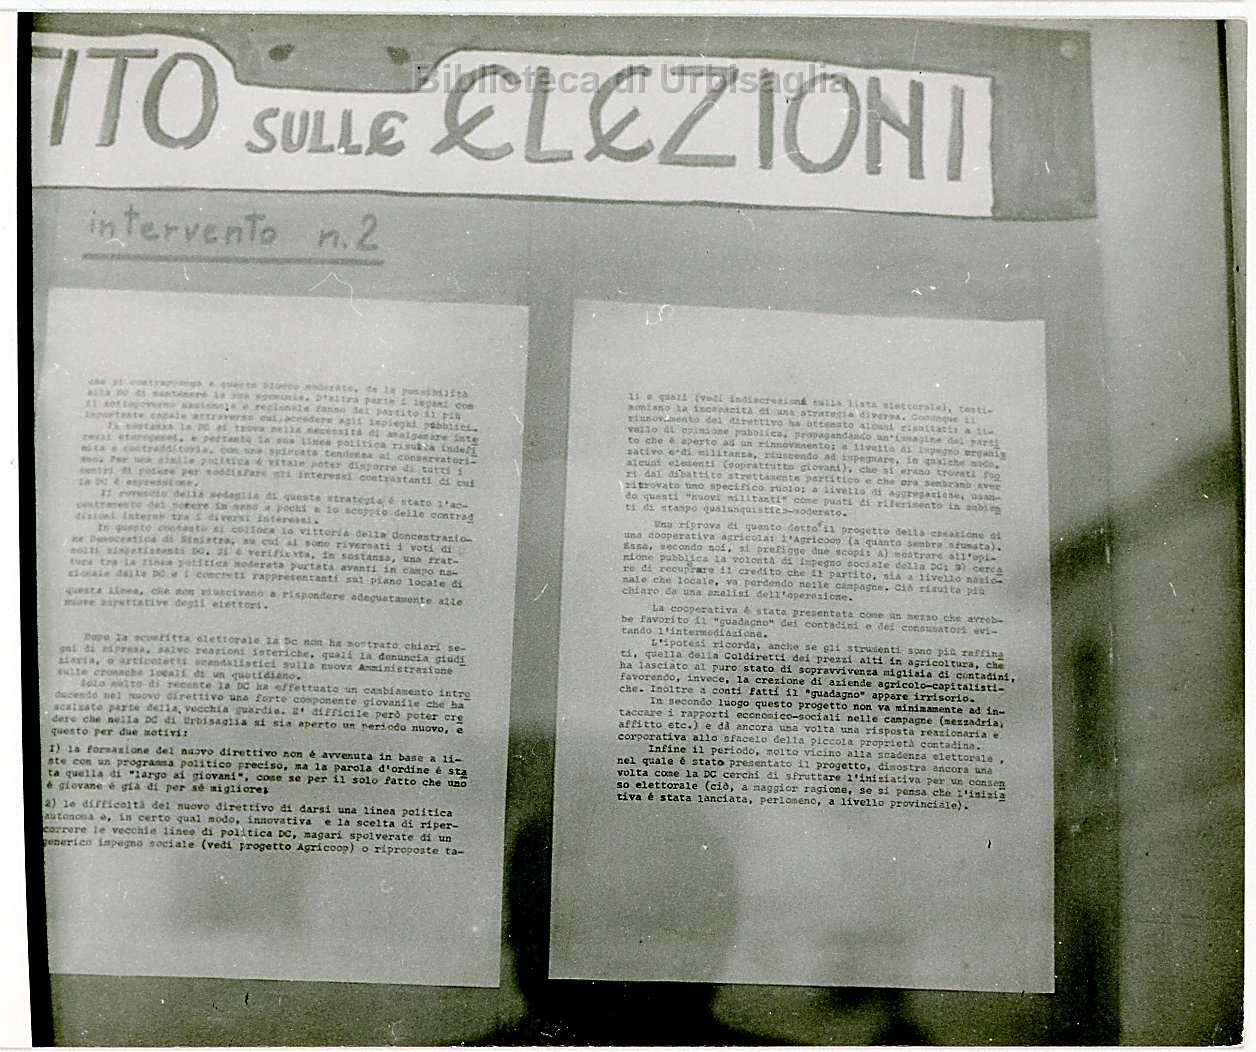 Biblioteca di Urbisaglia
TITO SULLE ELEZIONI
intervento n.2
che si contrapponga a questo blocco moderato, da la possibilità
alla DC di mantenere la sua egemonia. D'altra parte i legami con
il sottogoverno nazionale e regionale fanno del partito il più
importante canale attraverso cui accedere agli impieghi pubblici.
In sostanza la DC si trova nella necessità di amalgamare inte
ressi eterogenei, e pertanto la sua linea politica risulta indefi
nita e contraddittoria, con una spiccata tendenza al conservatori-
smo. Per una simile politica è vitale poter disporre di tutti i
centri di potere per soddisfare gli interessi contrastanti di cui
la DC è espressione.
Il rovescio della medaglia di questa strategia è stato l'ac-
centramento del potere in mano a pochi e lo scoppio delle contrad
dizioni interne tra i diversi interessi.
In questo contesto si colloca la vittoria della Concentrazio-
ne Democratica di Sinistra, su cui si sono riversati i voti di
molti simpatizzanti DC. Si è verificata, in sostanza, una frat-
tura tra la linea politica moderata portata avanti in campo na-
zionale dalla DC e i concreti rappresentanti sul piano locale di
questa linea, che non riuscivano a rispondere adeguatamente alle
nuove aspettative degli elettori.
Dopo la sconfitta elettorale la Dc non ha mostrato chiari se-
gni di ripresa, salvo reazioni isteriche, quali la denuncia giudi
ziaria, o articoletti scandalistici sulla nuova Amministrazione
sulle cronache locali di un quotidiano.
Solo molto di recente la DC ha effettuato un cambiamento intro
ducendo nel nuovo direttivo una forte componente giovanile che ha
scalzato parte della vecchia guardia. E' difficile però poter cre
dere che nella DC di Urbisaglia si sia aperto un periodo nuovo, e
questo per due motivi:
1) la formazione del nuovo direttivo non è avvenuta in base a li-
ste con un programma politico preciso, ma la parola d'ordine è sta
ta quella di "largo ai giovani", come se per il solo fatto che uno
è giovane è già di per sé migliore;
2) le difficoltà del nuovo direttivo di darsi una linea politica
autonoma e, in certo qual modo, innovativa e la scelta di riper-
correre le vecchie linee di politica DC, magari spolverate di un
generico impegno sociale (vedi progetto Agricoop) o riproposte ta-
li e quali (vedi indiscrezioni sulla lista elettorale), testi-
moniano la incapacità di una strategia diversa. Comunque il
rinnovamento del direttivo ha ottenuto alcuni risultati: a li-
vello di opinione pubblica, propagandando un'immagine del parti
to che è aperto ad un rinnovamento; a livello di impegno organiz
zativo e di militanza, riuscendo ad impegnare, in qualche modo,
alcuni elementi (soprattutto giovani), che si erano trovati fuo
ri dal dibattito strettamente partitico e che ora sembrano aver
ritrovato uno specifico ruolo; a livello di aggregazione, usan-
do questi "nuovi militanti" come punti di riferimento in ambien
ti di stampo qualunquistico-moderato.
Una riprova di quanto detto il progetto della creazione di
una cooperativa agricola: l'Agricoop (a quanto sembra sfumata).
Essa, secondo noi, si prefigge due scopi: A) mostrare all'opi-
nione pubblica la volontà di impegno sociale della DC; B) cerca
re di recuprare il credito che il partito, sia a livello nazio-
nale che locale, va perdendo nelle campagne. Ciò risulta più
chiaro da una analisi dell'operazione.
La cooperativa è stata presentata come un mezzo che avreb-
be favorito il "guadagno" dei contadini e dei consumatori evi-
tando l'intermediazione.
L'ipotesi ricorda, anche se gli strumenti sono più raffina
ti, quella della Coldiretti dei prezzi alti in agricoltura, che
ha lasciato al puro stato di sopravvivenza migliaia di contadini,
favorendo, invece, la crezione di aziende agricolo-capitalisti-
che. Inoltre a conti fatti il "guadagno" appare irrisorio.
In secondo luogo questo progetto non va minimamente ad in-
taccare i rapporti economico-sociali nelle campagne (mezzadria,
affitto etc.) e dà ancora una volta una risposta reazionaria e
corporativa allo sfacelo della piccola proprietà contadina.
Infine il periodo, molto vicino alla scadenza elettorale ,
nel quale é stato presentato il progetto, dimostra ancora una
volta come la DC cerchi di sfruttare l'iniziativa per un consen
so elettorale (ciò, a maggior ragione, se si pensa che l'inizia
tiva é stata lanciata, perlomeno, a livello provinciale).